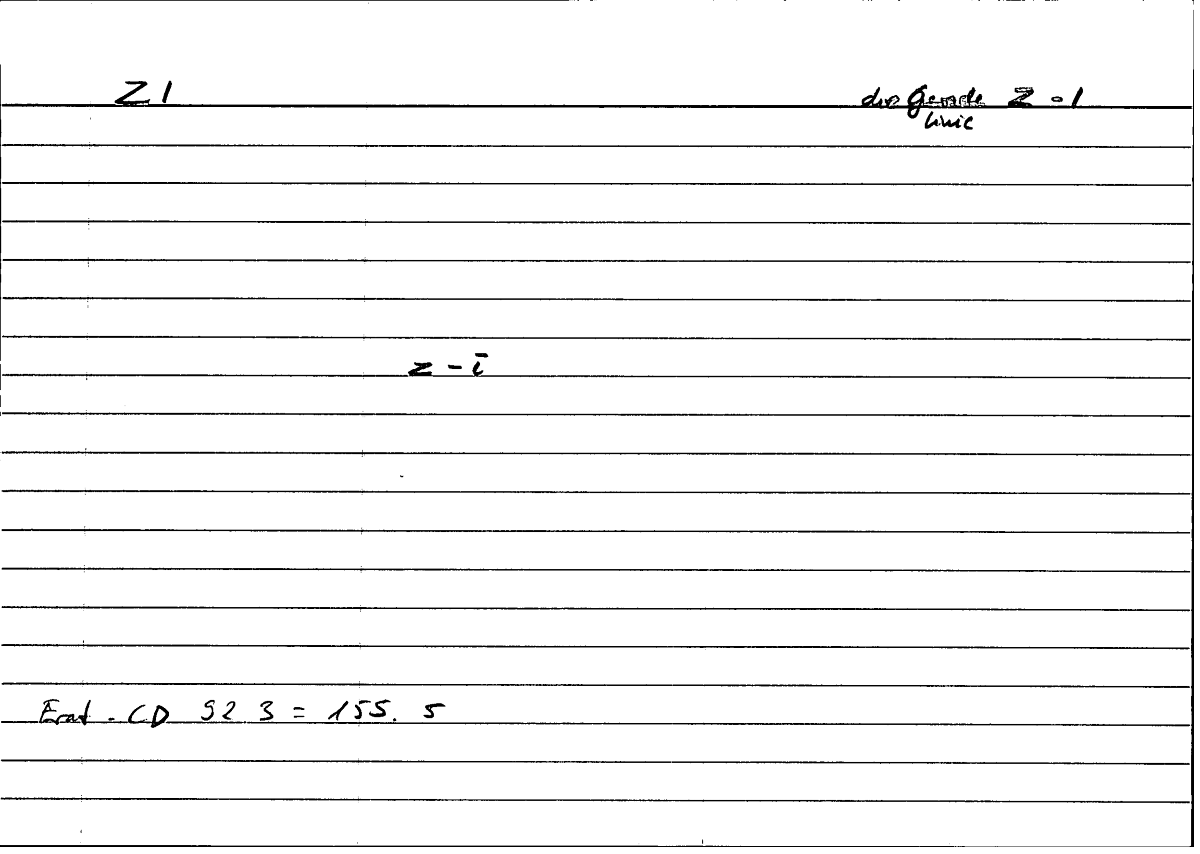 Z 1
die gerade Z - 1
Linie
z - ī
Erat. CD 92 3 = 155. 5